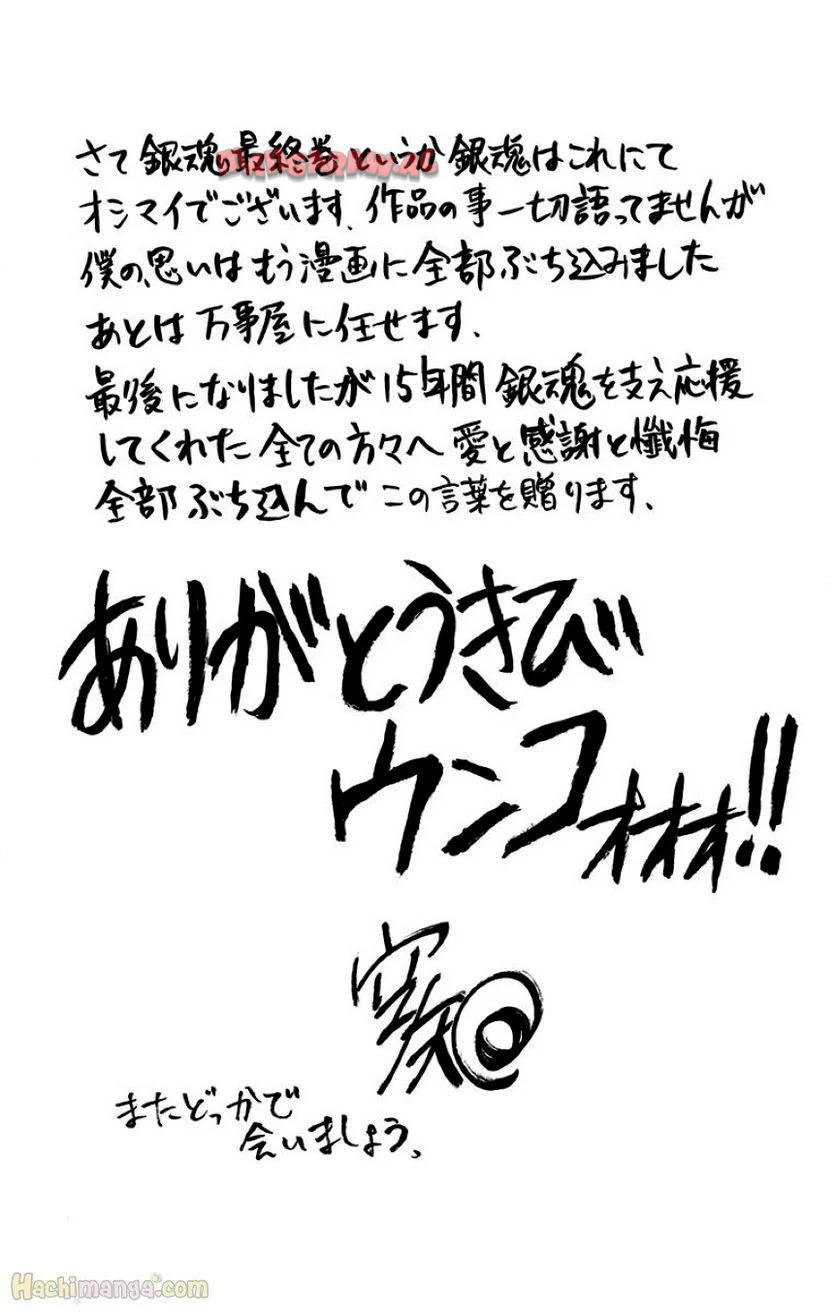 さて銀魂最終巻というか銀魂はこれにて
オシマイでございます、作品の事一切語ってませんが
僕の思いはもう漫画に全部ぶち込みました
あとは万事屋に任せます、
最後になりましたが15年間銀魂を支え応援
してくれた全ての方々へ愛と感謝と懺悔
全部ぶち込んでこの言葉を贈ります、
ありがとうきび
ウンコォオオオ!!
空知
またどっかで
会いましょう、
Hachimanga.com